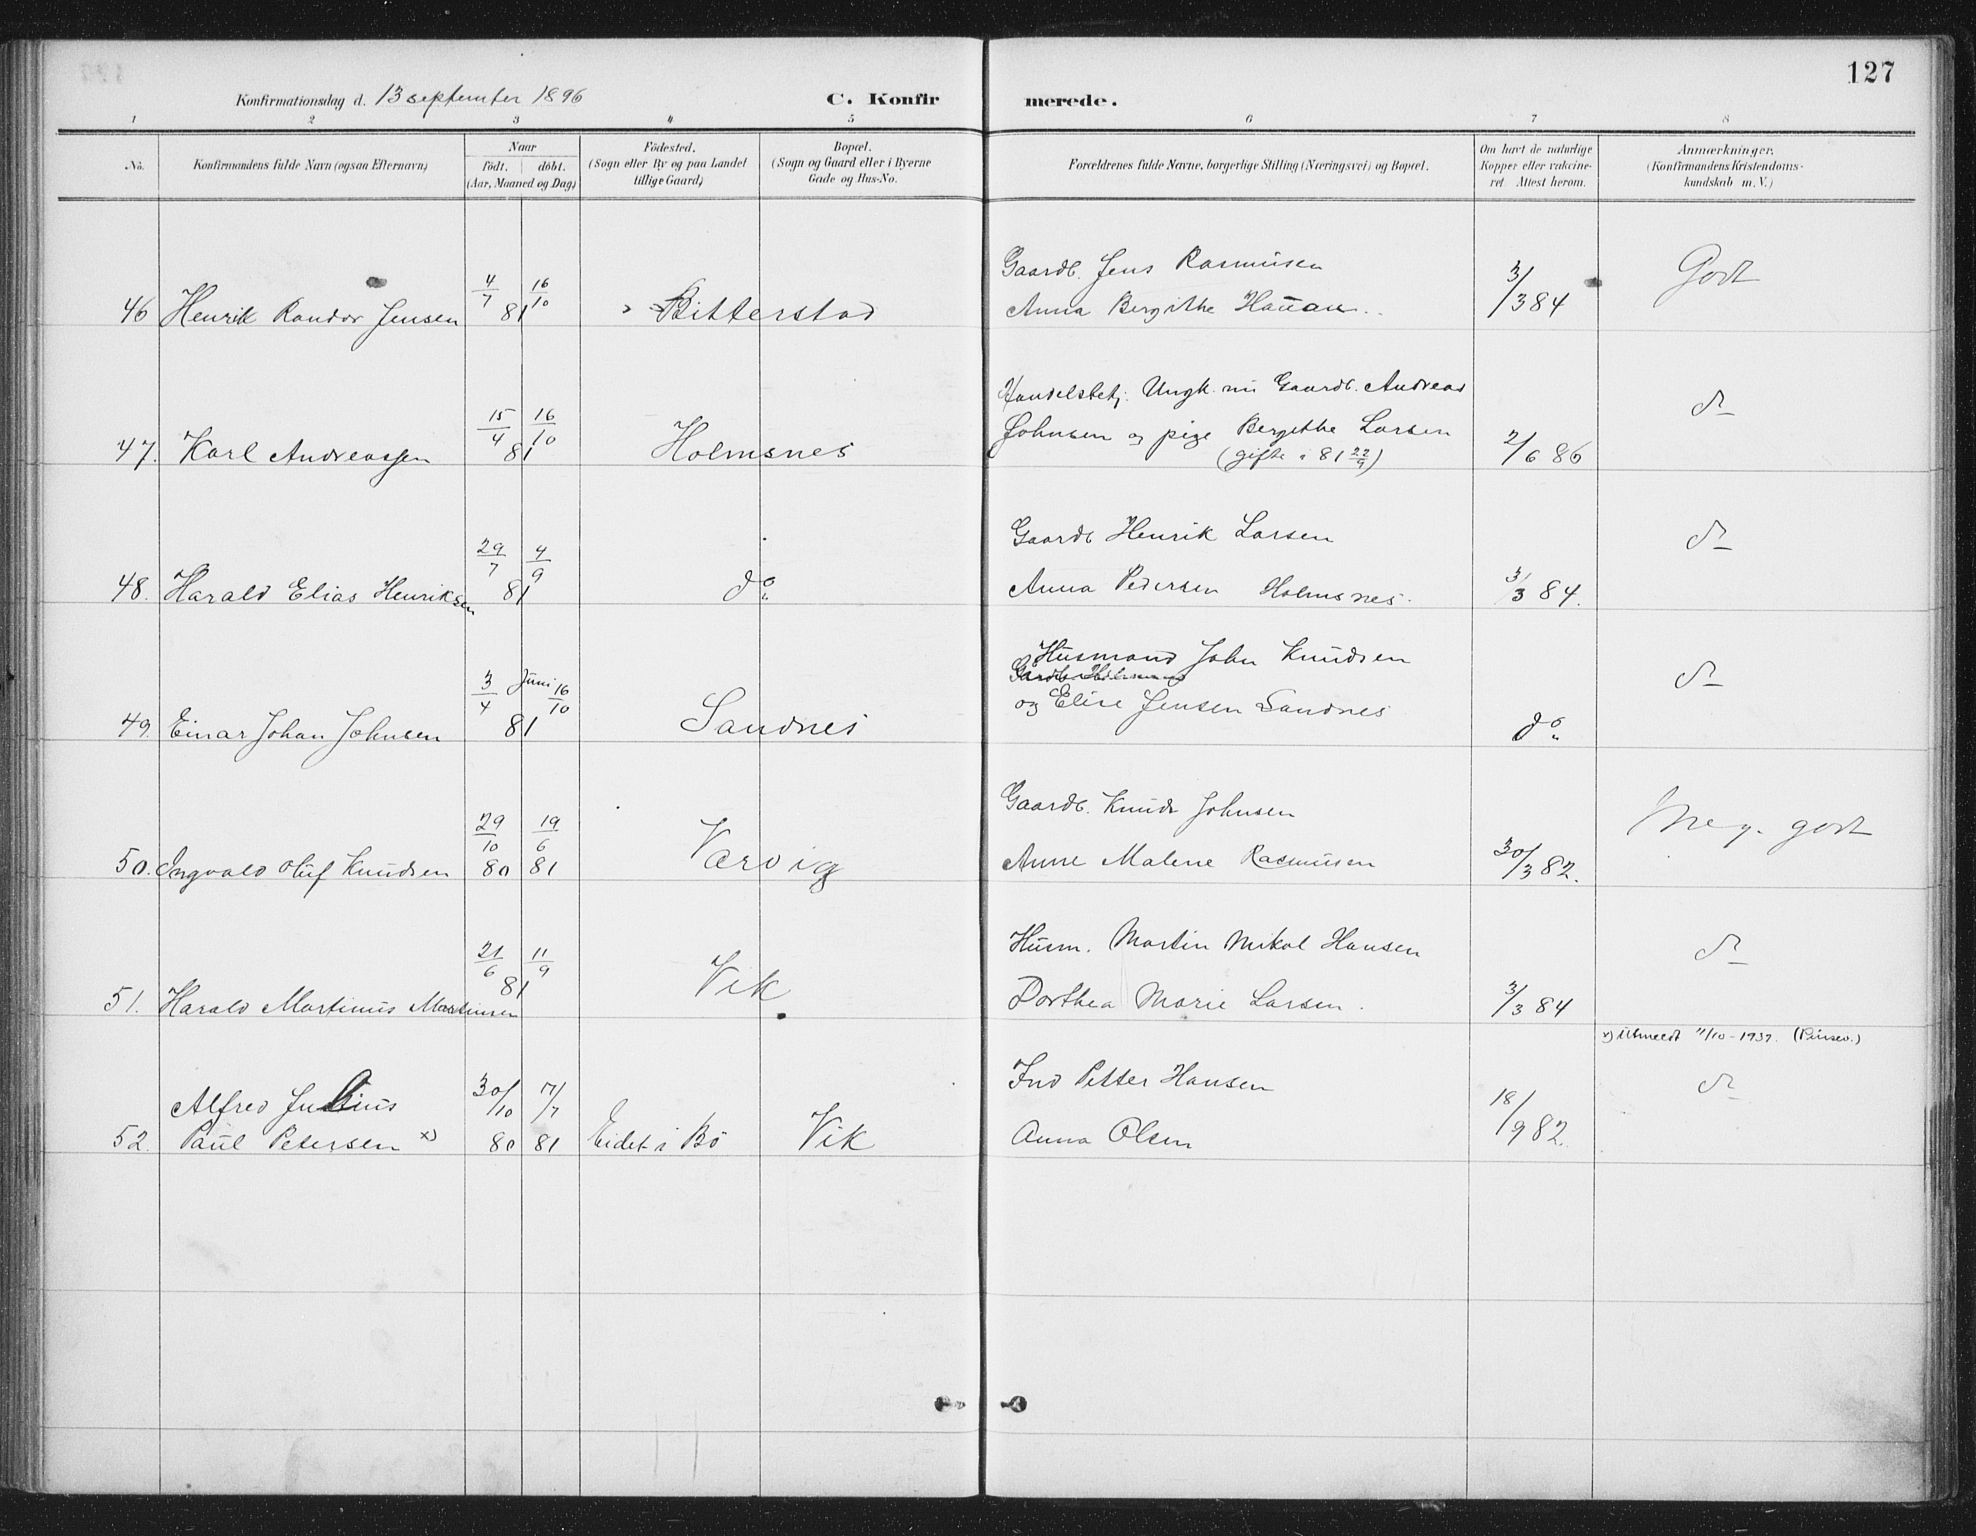 127
Konfirmationsdag d. 13 september 1896
C. Konfirmerede.
1 2 3 4 5 6 7 8
No. Konfirmandens fulde Navn (ogsaa Efternavn) Naar födt. döbt. (Aar, Maaned og Dag) Födested. (Sogn eller By og paa Landet tillige Gaard) Bopæl. (Sogn og Gaard eller i Byerne Gade og Hus-No. Forældrenes fulde Navne, borgerlige Stilling (Næringsvei) og Bopæl. Om havt de naturlige Kopper eller vaccineret. Attest herom. Anmærkninger. (Konfirmandens Kristendomskundskab m. V.)
46 Henrik Randor Jensen 4/7 16/10 81 Bitterstad
Gaardb. Jens Rasmusen
Anna Bergithe Hauan
3/3 84 Godt
47. Karl Andreassen 15/4 16/10 81 Holmsnes
Handelsbetj. Ungk. nu Gaardb. Andreas
Johnsen og pige Bergithe Larsen
(gifte i 81 22/9)
2/6 86 do
48. Harald Elias Henriksen 29/7 4/9 81 do
Gaardb Henrik Larsen
Anna Pedersen Holmsnes.
3/3 84. do
49. Einar Johan Johnsen 3/4 Juni 16/10 81 Sandnes
Husmand John Knudsen
og Elise Jensen Sandnes
do do
50. Ingvald Oluf Knudsen 29/10 80 19/6 81 Værvig
Gaardb. Knud Johnsen
Anne Malene Rasmusen
30/3 82. Meg. godt
51. Harald Martinus Martinsen 21/6 11/9 81 Vik
Husm. Martin Mikal Hansen
Dorthea Marie Larsen.
3/3 84 do
x) Utmeldt 11/10-1937. (Pinsev.)
Alfred Justius
52. Paul Petersen x) 30/10 80 7/7 81 Eidet i Bö Vik
Ind Petter Hansen
Anna Olsen
18/9 82. do